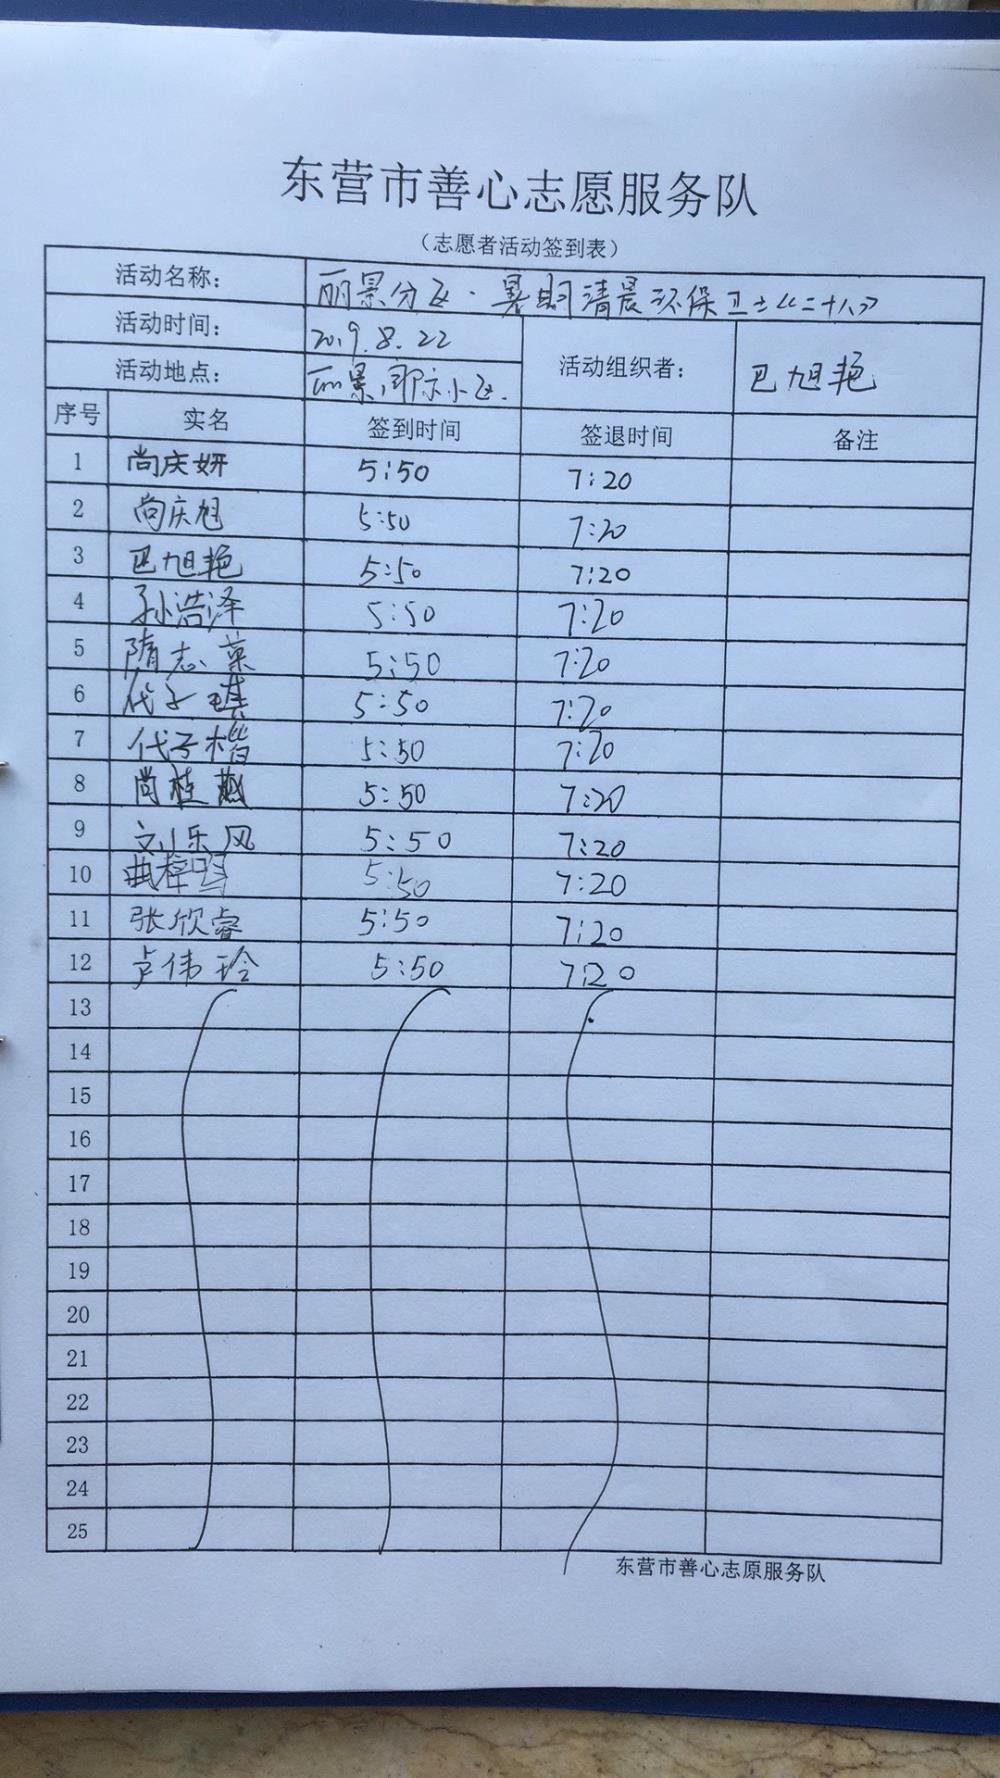 东营市善心志愿服务队
（志愿者活动签到表）
活动名称： 丽景分区·暑期清晨环保卫士《二十八》
活动时间： 2019.8.22 活动组织者： 巴旭艳
活动地点： 丽景,即亦小区.
序号 实名 签到时间 签退时间 备注
1 尚庆妍 5:50 7:20
2 尚庆旭 5:50 7:20
3 巴旭艳 5:50 7:20
4 孙浩泽 5:50 7:20
5 隋志菓 5:50 7:20
6 代子琪 5:50 7:20
7 代子楷 5:50 7:20
8 尚桂燕 5:50 7:20
9 刘乐风 5:50 7:20
10 曲梓鸣 5:50 7:20
11 张欣睿 5:50 7:20
12 卢伟玲 5:50 7:20
13
14
15
16
17
18
19
20
21
22
23
24
25
东营市善心志原服务队